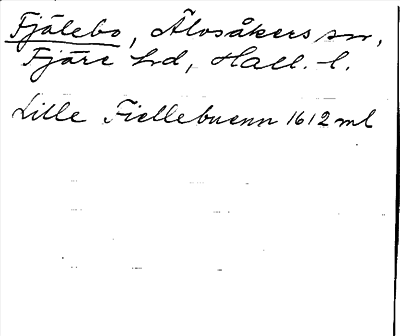 Fjälebo, Älvsåkers sn,
Fjäre hd, Hall. l.
Lille Fiellebuenn 1612 ml